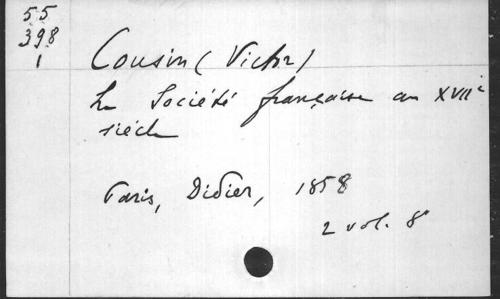 55
398
1
Cousin (Victor)
La Société française au XVIIe
siècle
Paris, Didier, 1858
2 vol. 8°